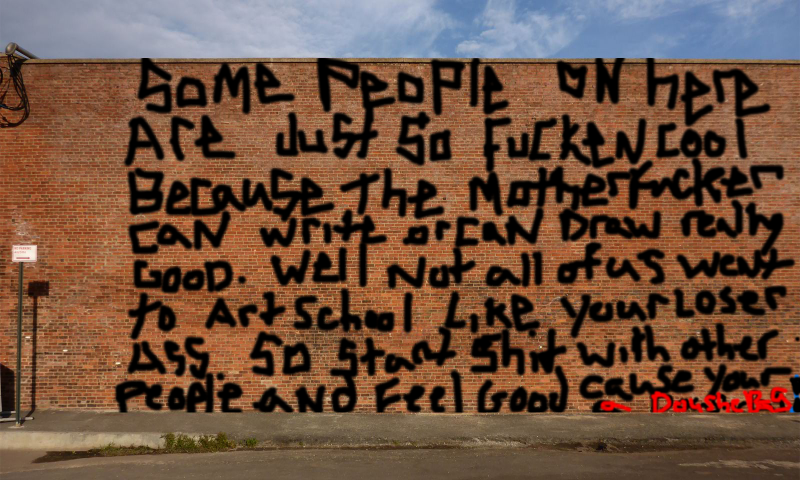 Some People on here
Are Just So Fucken Cool
Because the Motherfucker
can write or can Draw really
Good. Well Not all of us went
to Art School Like your Loser
Ass. So start shit with other
People and Feel Good cause your
a DousheBag